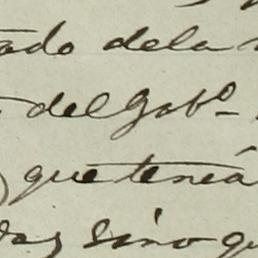 ado dela
del Gobº
que tenía
das sino qu